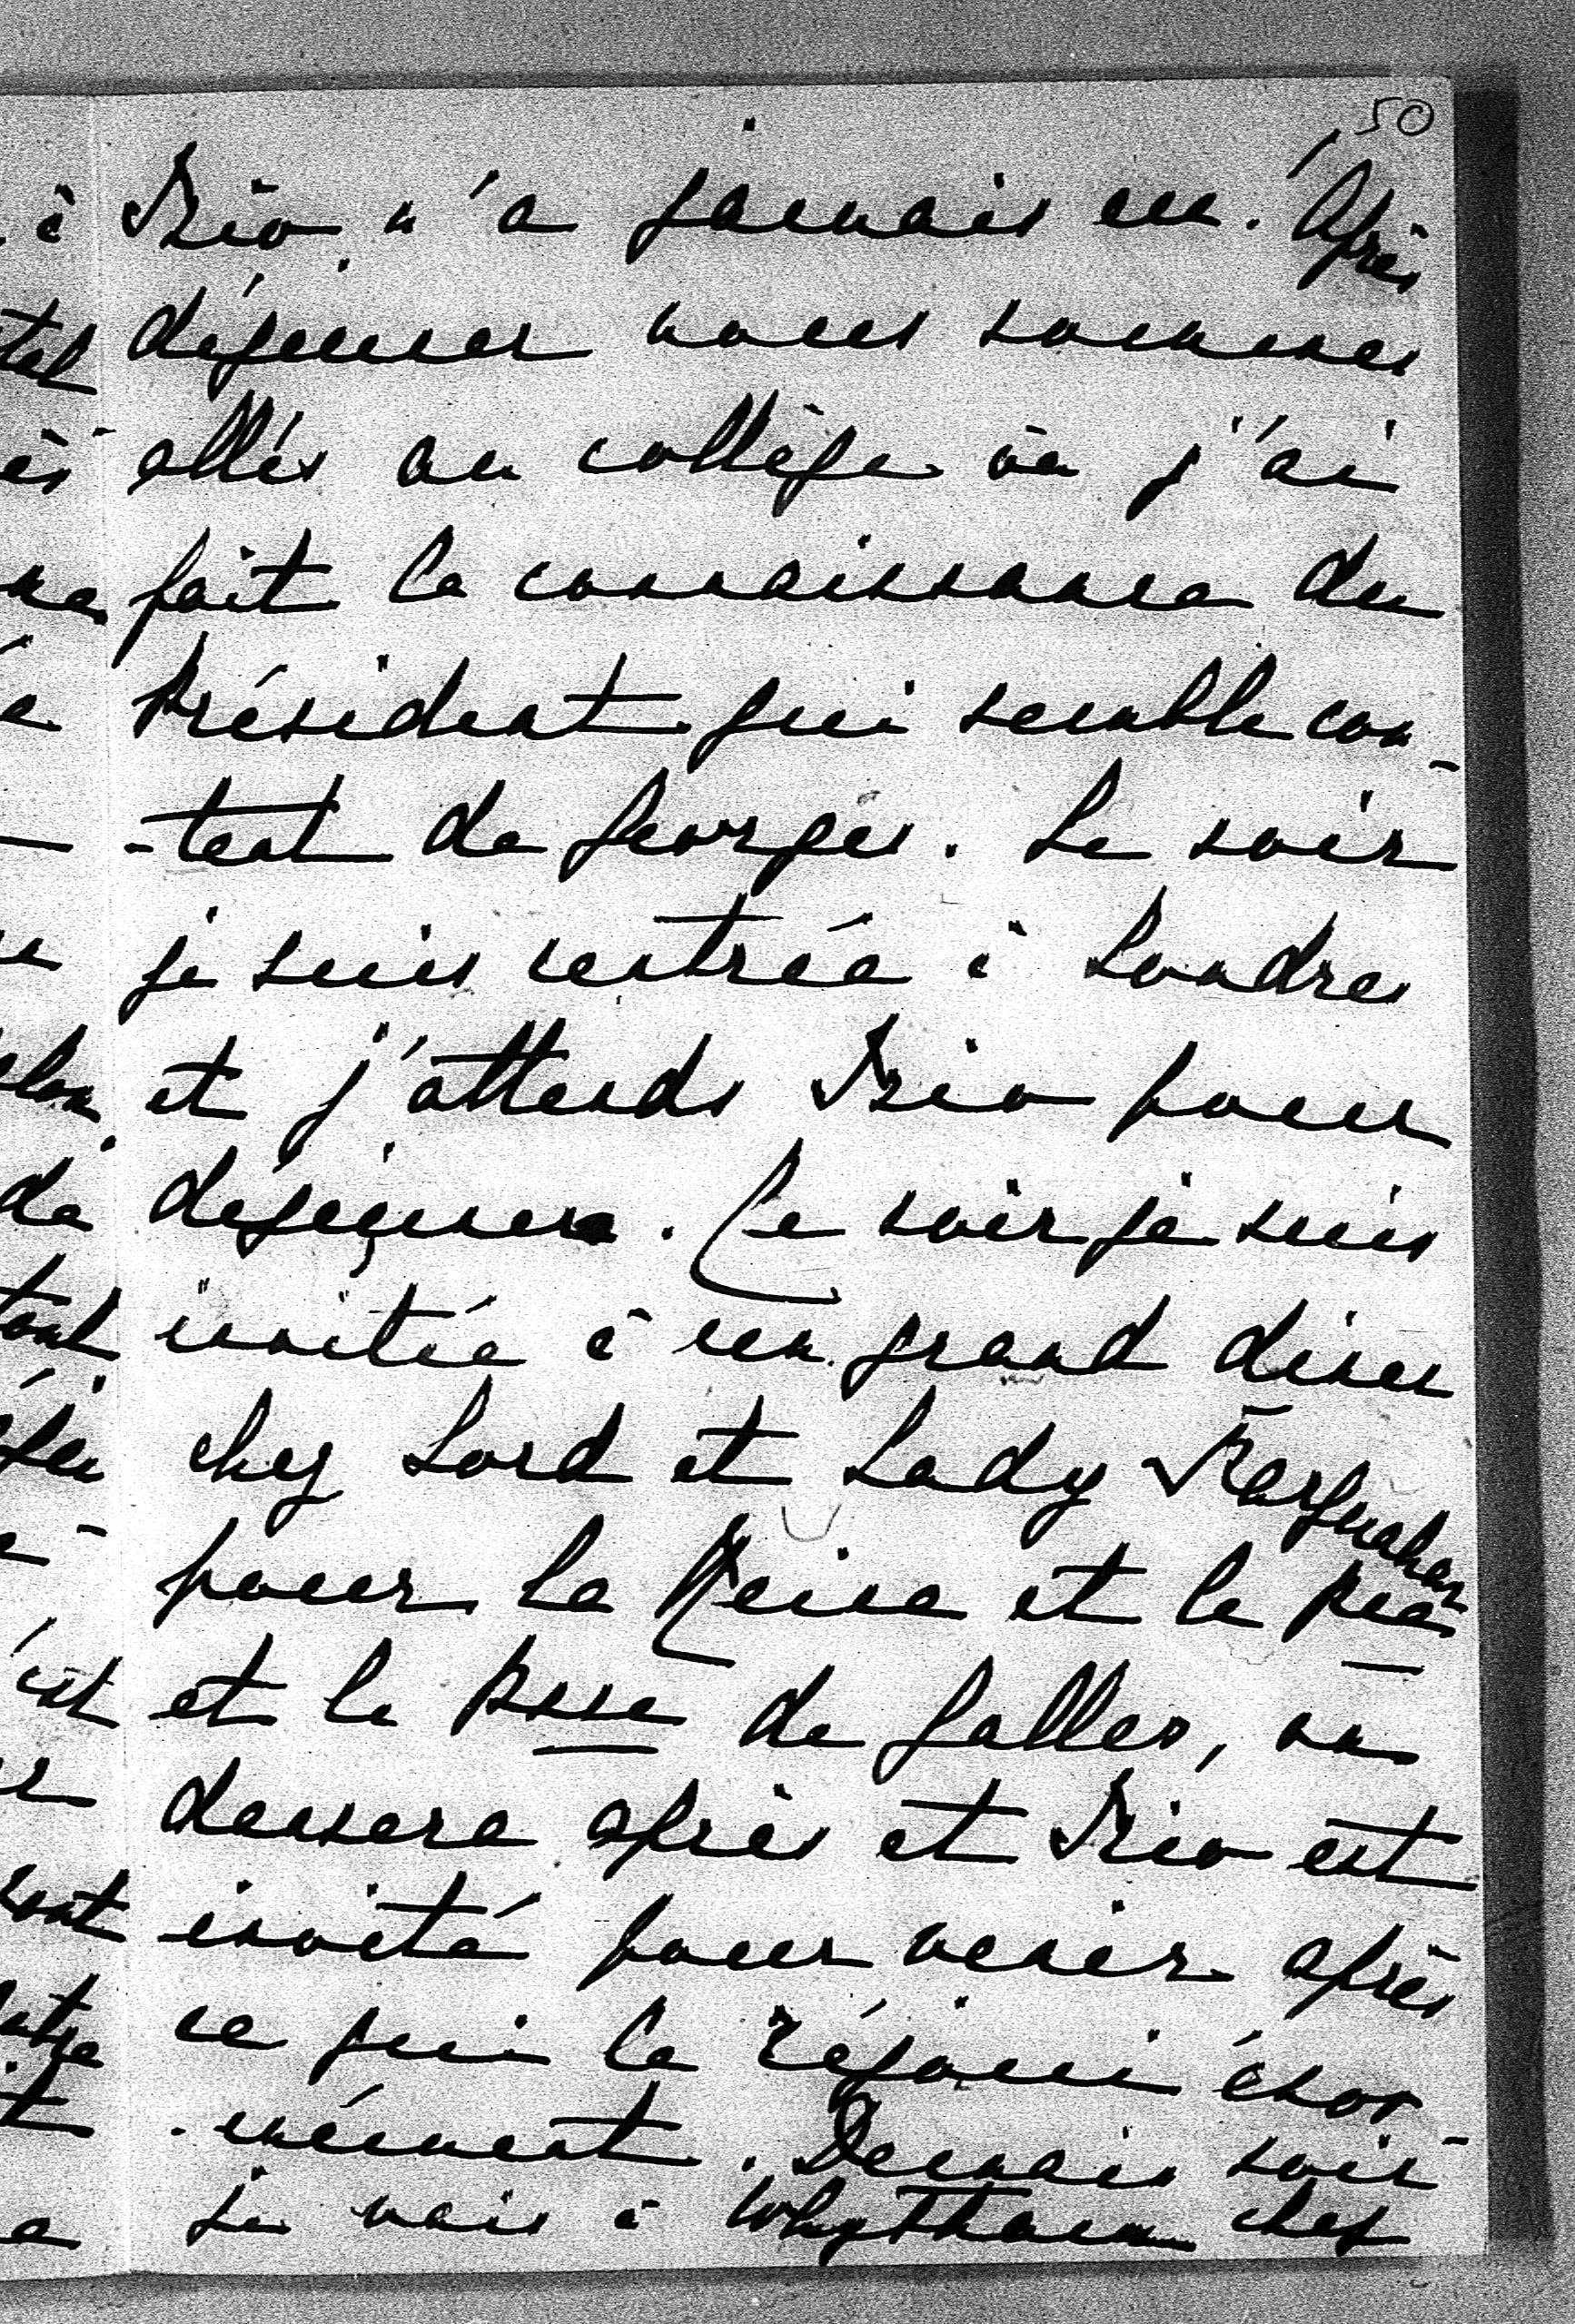 50
à Frío n'a jamais eu. Après
déjeuner nous sommes
allés au collège où j'ai
fait la connaissance du
Président qui semble con-
-tent de Georges. Le soir
je suis rentrée à Londres
et j'attends Frío pour
déjeuner. Ce soir je suis
invitée à un grand diner
chez Lord et Lady Farquahar
pour la Reine et le
et la Psse de Galles, on
dansera après et Frío est
invité pour venir après
ce qui le réjoui énor-
-mément. Demain soir
je vais à Whytham chez